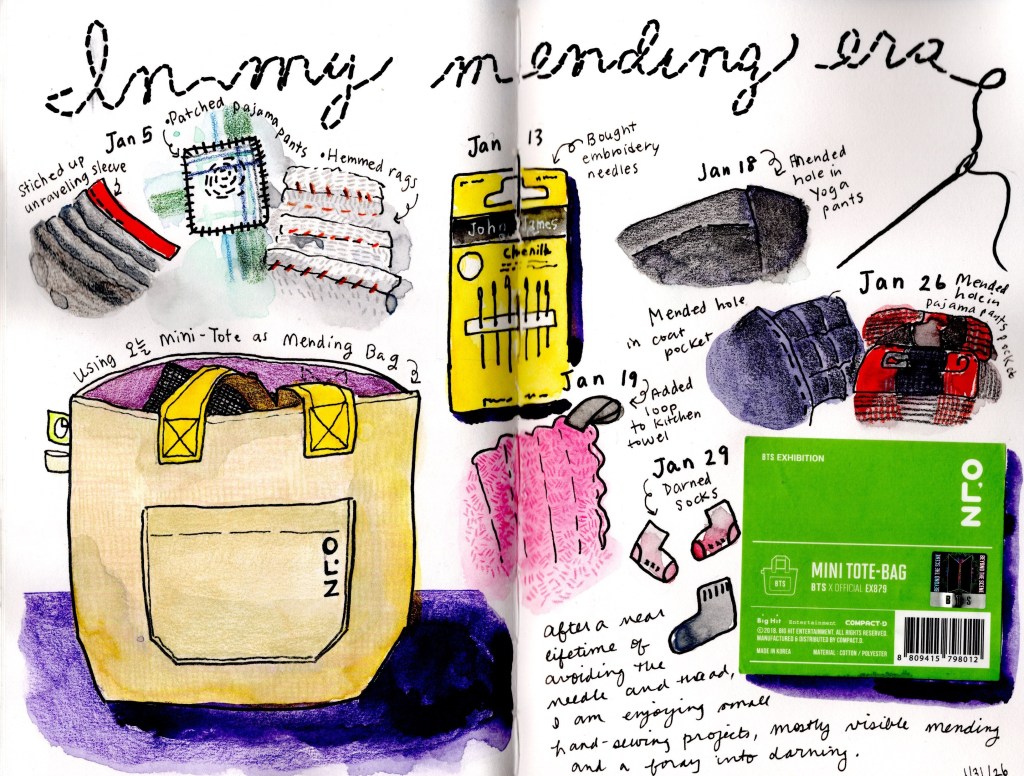 In my mending era
Jan 5
•Patched pajama pants
Stiched up
unraveling sleeve
•Hemmed rags
Jan 13
Bought
embroidery
needles
John James
Chenille
Jan 18
Mended
hole in
yoga
pants
Mended hole
in coat
pocket
Jan 26
Mended
hole in
pajama pants
pocket
Using 오늘 Mini-Tote as Mending Bag
Jan 19
Added
loop
to kitchen
towel
Jan 29
Darned
socks
BTS EXHIBITION
BTS
MINI TOTE-BAG
BTS X OFFICIAL EX879
BEYOND THE SCENE
BEYOND THE SCENE
BTS
Big Hit Entertainment COMPACT·D
©2018. BIG HIT ENTERTAINMENT. ALL RIGHTS RESERVED.
MANUFACTURED & DISTRIBUTED BY COMPACT.D.
MADE IN KOREA MATERIAL : COTTON / POLYESTER
8 809415 798012
after a near
lifetime of
avoiding the
needle and thread,
I am enjoying small
hand-sewing projects, mostly visible mending
and a foray into darning.
1/31/26